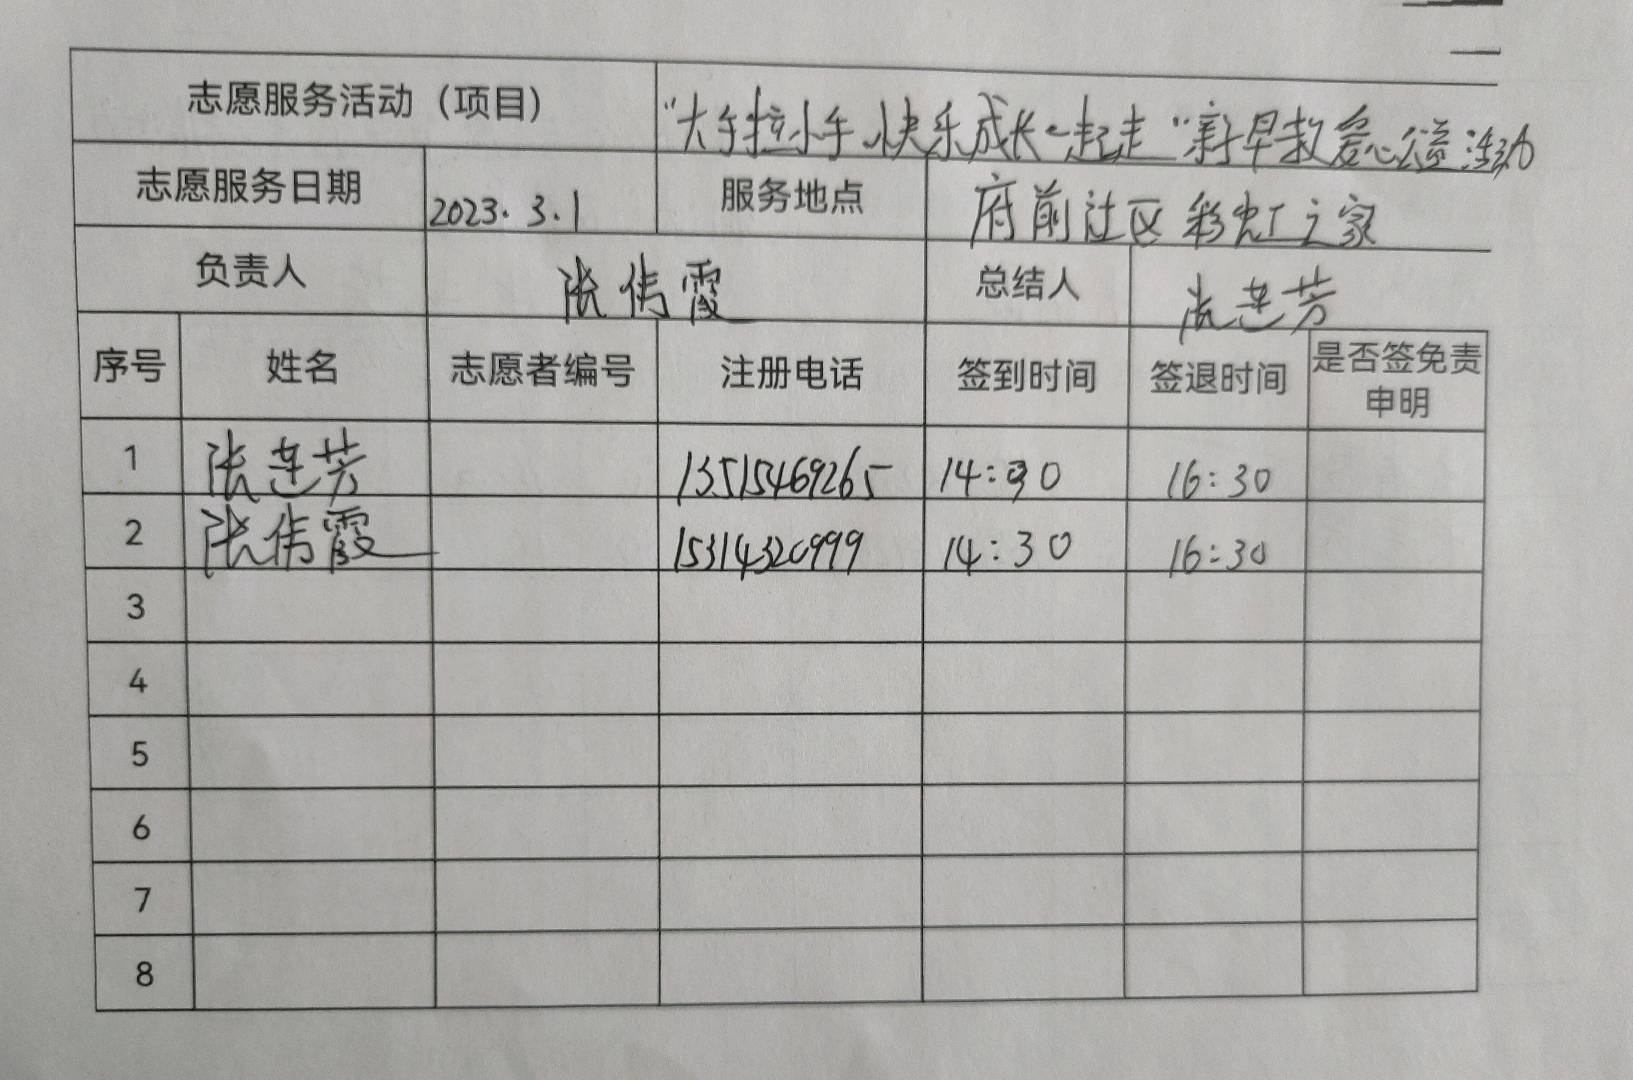 志愿服务活动（项目） “大手拉小手 快乐成长一起走”新早教爱心公益活动
志愿服务日期 2023.3.1 服务地点 府前社区彩虹之家
负责人 张伟霞 总结人 张莲芳
序号 姓名 志愿者编号 注册电话 签到时间 签退时间 是否签免责
申明
1 张莲芳 13515469265 14:30 16:30
2 张伟霞 15314320999 14:30 16:30
3
4
5
6
7
8